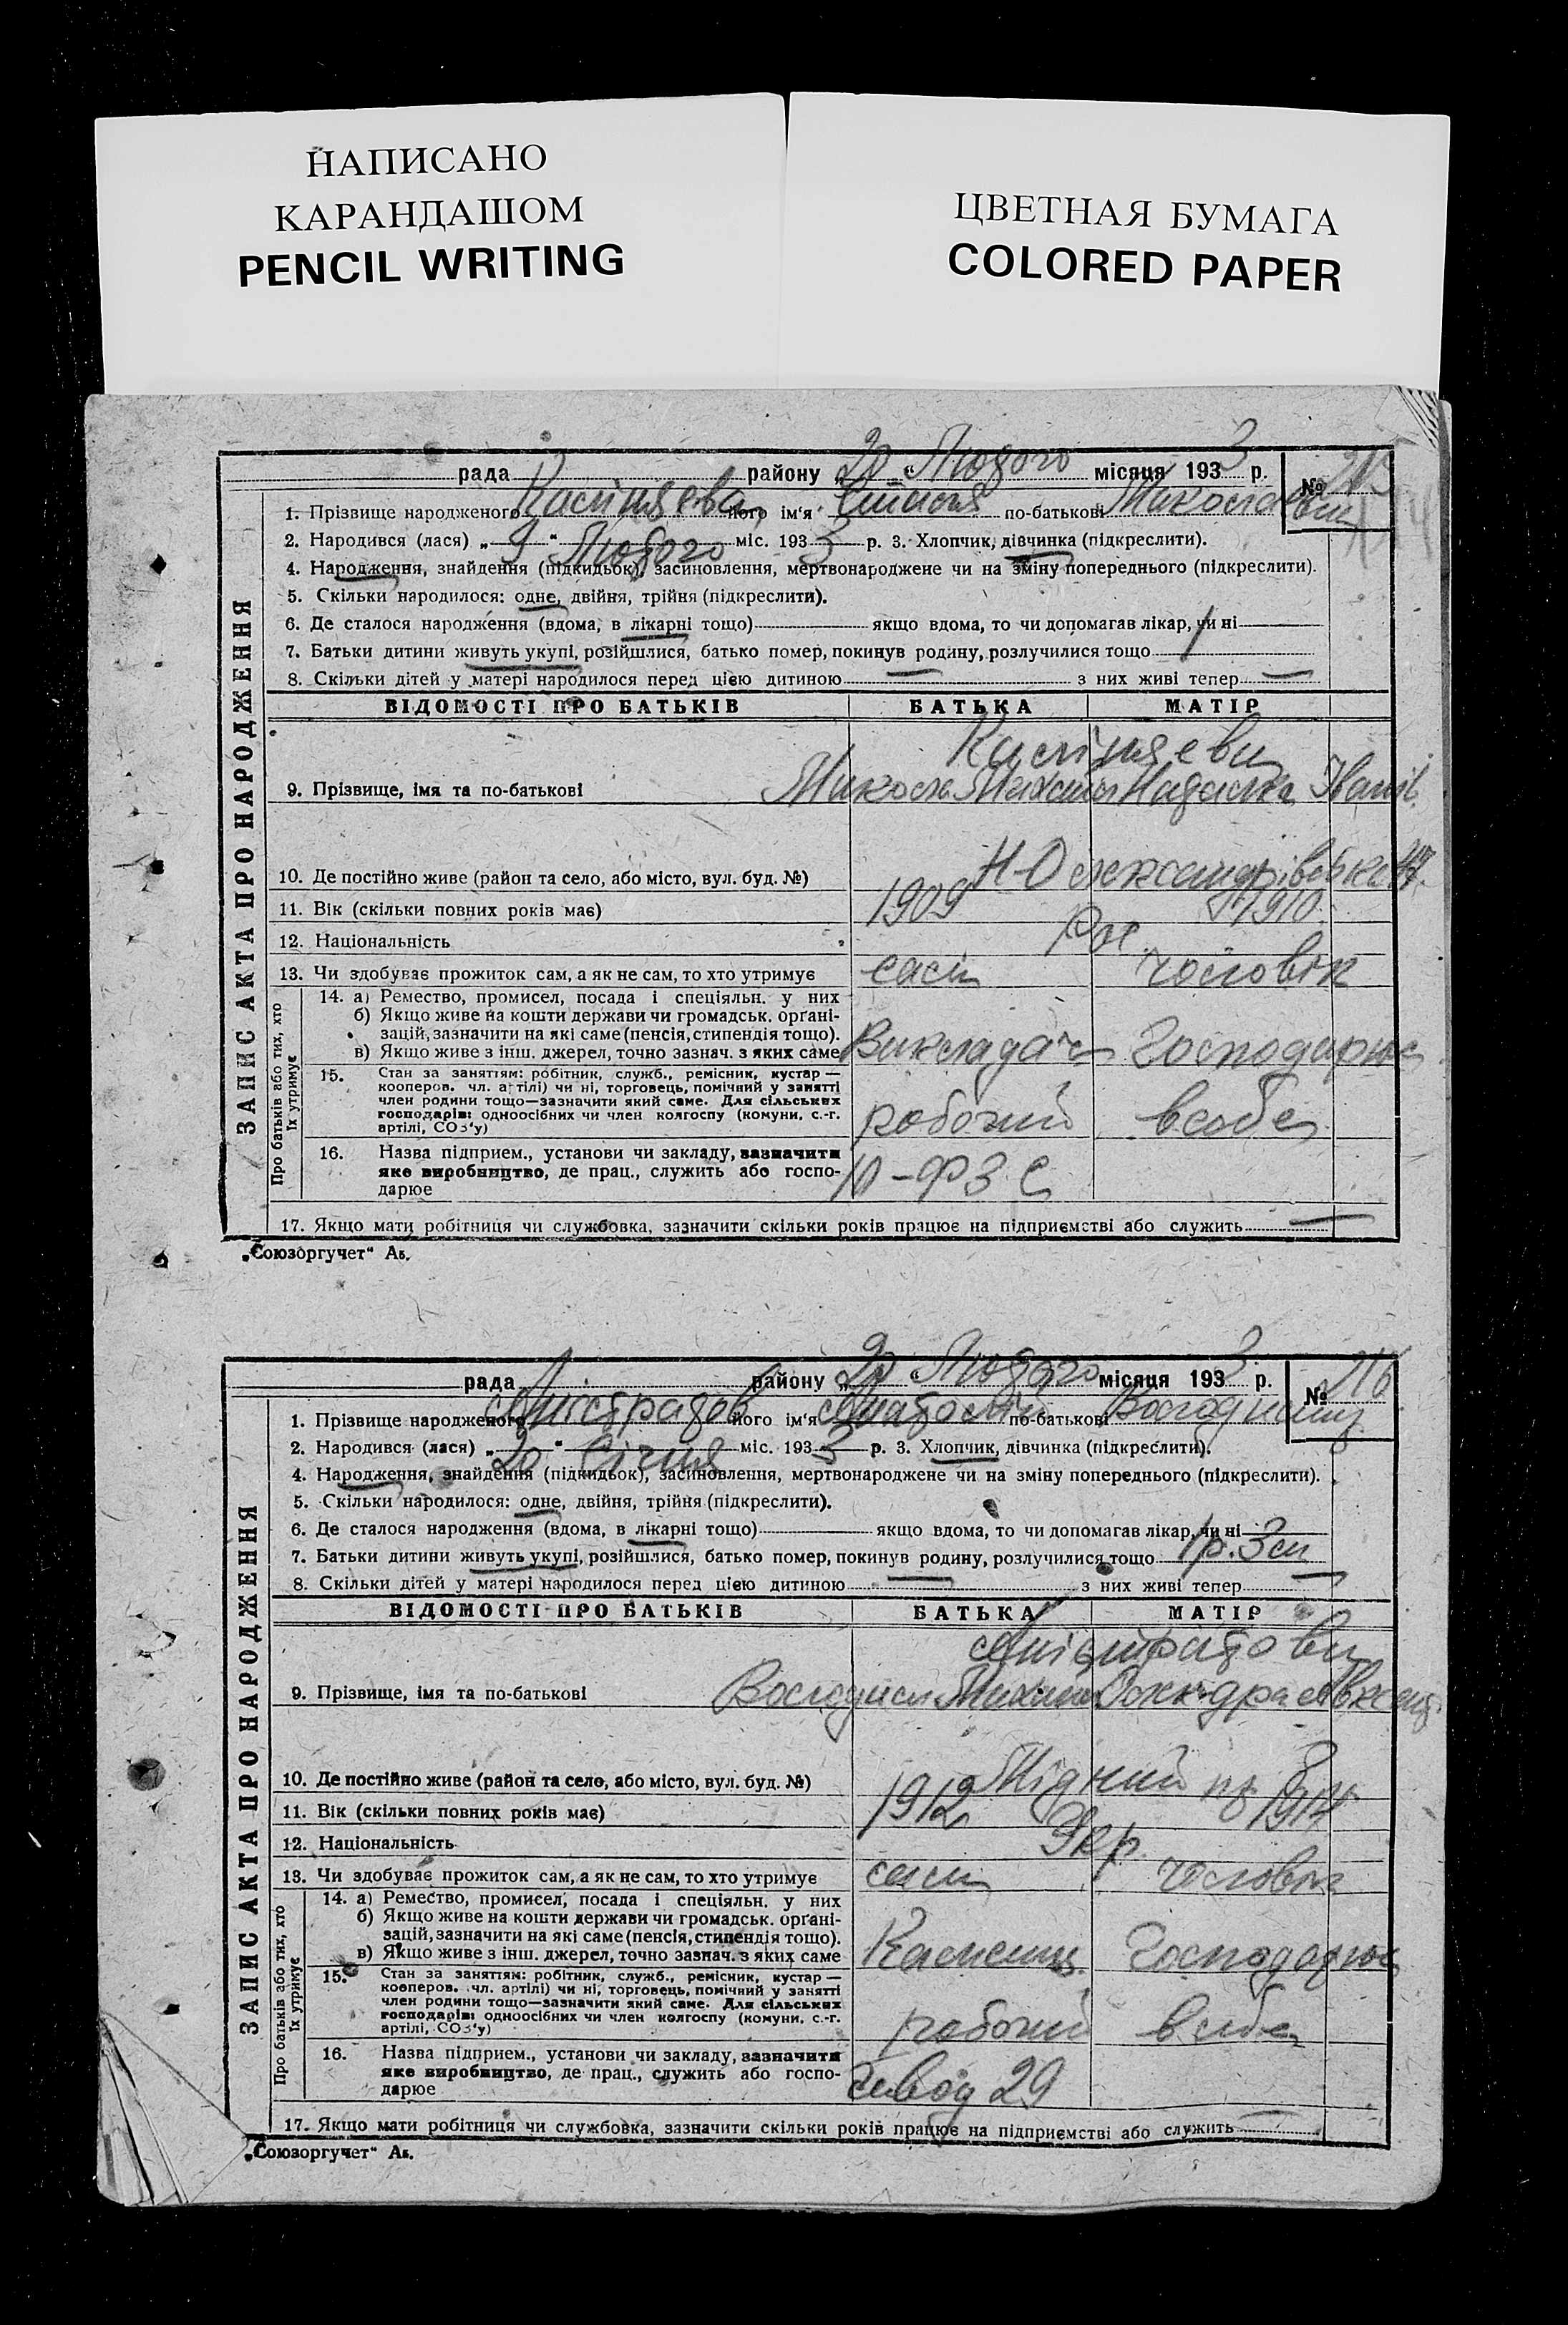 НАПИСАНО
КАРАНДАШОМ
PENCIL WRITING
ЦВЕТНАЯ БУМАГА
COLORED PAPER
рада района району „20“ Лютого місяця 1933 р. № 215
1. Прізвище народженого його ім'я по-батькові
2. Народився (лася) „9“ Лютого міс. 1933 р. 3. Хлопчик, дівчинка (підкреслити).
4. Народження, знайдення (підкидьок), засиновлення, мертвонароджене чи на зміну попереднього (підкреслити).
5. Скільки народилося: одне, двійня, трійня (підкреслити).
6. Де сталося народження (вдома, в лікарні тощо) якщо вдома, то чи допомагав лікар, чи ні
7. Батьки дитини живуть укупі, розійшлися, батько помер, покинув родину, розлучилися тощо
8. Скільки дітей у матері народилося перед цією дитиною — з них живі тепер —
ЗАПИС АКТА ПРО НАРОДЖЕННЯ
ВІДОМОСТІ ПРО БАТЬКІВ БАТЬКА МАТІР
9. Прізвище, імя та по-батькові Микола
10. Де постійно живе (район та село, або місто, вул. буд. №)
11. Вік (скільки повних років має) 1909 1910
12. Національність Рос.
13. Чи здобуває прожиток сам, а як не сам, то хто утримує сам чоловік
Про батьків або тих, хто їх утримує
14. а) Ремество, промисел, посада і спеціяльн. у них
б) Якщо живе на кошти держави чи громадськ. орґані-
зацій, зазначити на які саме (пенсія, стипендія тощо).
в) Якщо живе з інш. джерел, точно зазнач. з яких саме Викладач Господарює
15. Стан за заняттям: робітник, служб., ремісник, кустар —
кооперов. чл. артілі) чи ні, торговець, помічний у занятті
член родини тощо—зазначити який саме. Для сільських
господарів: одноосібних чи член колгоспу (комуни, с.-г.
артілі, СОЗ'у) робочий всобе
16. Назва підприєм., установи чи закладу, зазначити
яке виробництво, де прац., служить або госпо-
дарює
17. Якщо мати робітниця чи службовка, зазначити скільки років працює на підприємстві або служить —
„Союзоргучет“ Аб.
рада району „20“ Лютого місяця 1933 р. № 216
1. Прізвище народженого його ім'я по-батькові
2. Народився (лася) „20“ Січня міс. 1933 р. 3. Хлопчик, дівчинка (підкреслити).
4. Народження, знайдення (підкидьок), засиновлення, мертвонароджене чи на зміну попереднього (підкреслити).
5. Скільки народилося: одне, двійня, трійня (підкреслити).
6. Де сталося народження (вдома, в лікарні тощо) якщо вдома, то чи допомагав лікар, чи ні
7. Батьки дитини живуть укупі, розійшлися, батько помер, покинув родину, розлучилися тощо 1 р. 3 м
8. Скільки дітей у матері народилося перед цією дитиною — з них живі тепер —
ЗАПИС АКТА ПРО НАРОДЖЕННЯ
ВІДОМОСТІ ПРО БАТЬКІВ БАТЬКА МАТІР
9. Прізвище, імя та по-батькові
10. Де постійно живе (район та село, або місто, вул. буд. №) Мідний
11. Вік (скільки повних років має) 1912 1914
12. Національність Укр.
13. Чи здобуває прожиток сам, а як не сам, то хто утримує сам чоловік
Про батьків або тих, хто їх утримує
14. а) Ремество, промисел, посада і спеціяльн. у них
б) Якщо живе на кошти держави чи громадськ. орґані-
зацій, зазначити на які саме (пенсія, стипендія тощо).
в) Якщо живе з інш. джерел, точно зазнач. з яких саме Господарює
15. Стан за заняттям: робітник, служб., ремісник, кустар —
кооперов. чл. артілі) чи ні, торговець, помічний у занятті
член родини тощо—зазначити який саме. Для сільських
господарів: одноосібних чи член колгоспу (комуни, с.-г.
артілі, СОЗ'у) робочий всобе
16. Назва підприєм., установи чи закладу, зазначити
яке виробництво, де прац., служить або госпо-
дарює завод 29
17. Якщо мати робітниця чи службовка, зазначити скільки років працює на підприємстві або служить —
„Союзоргучет“ Аб.